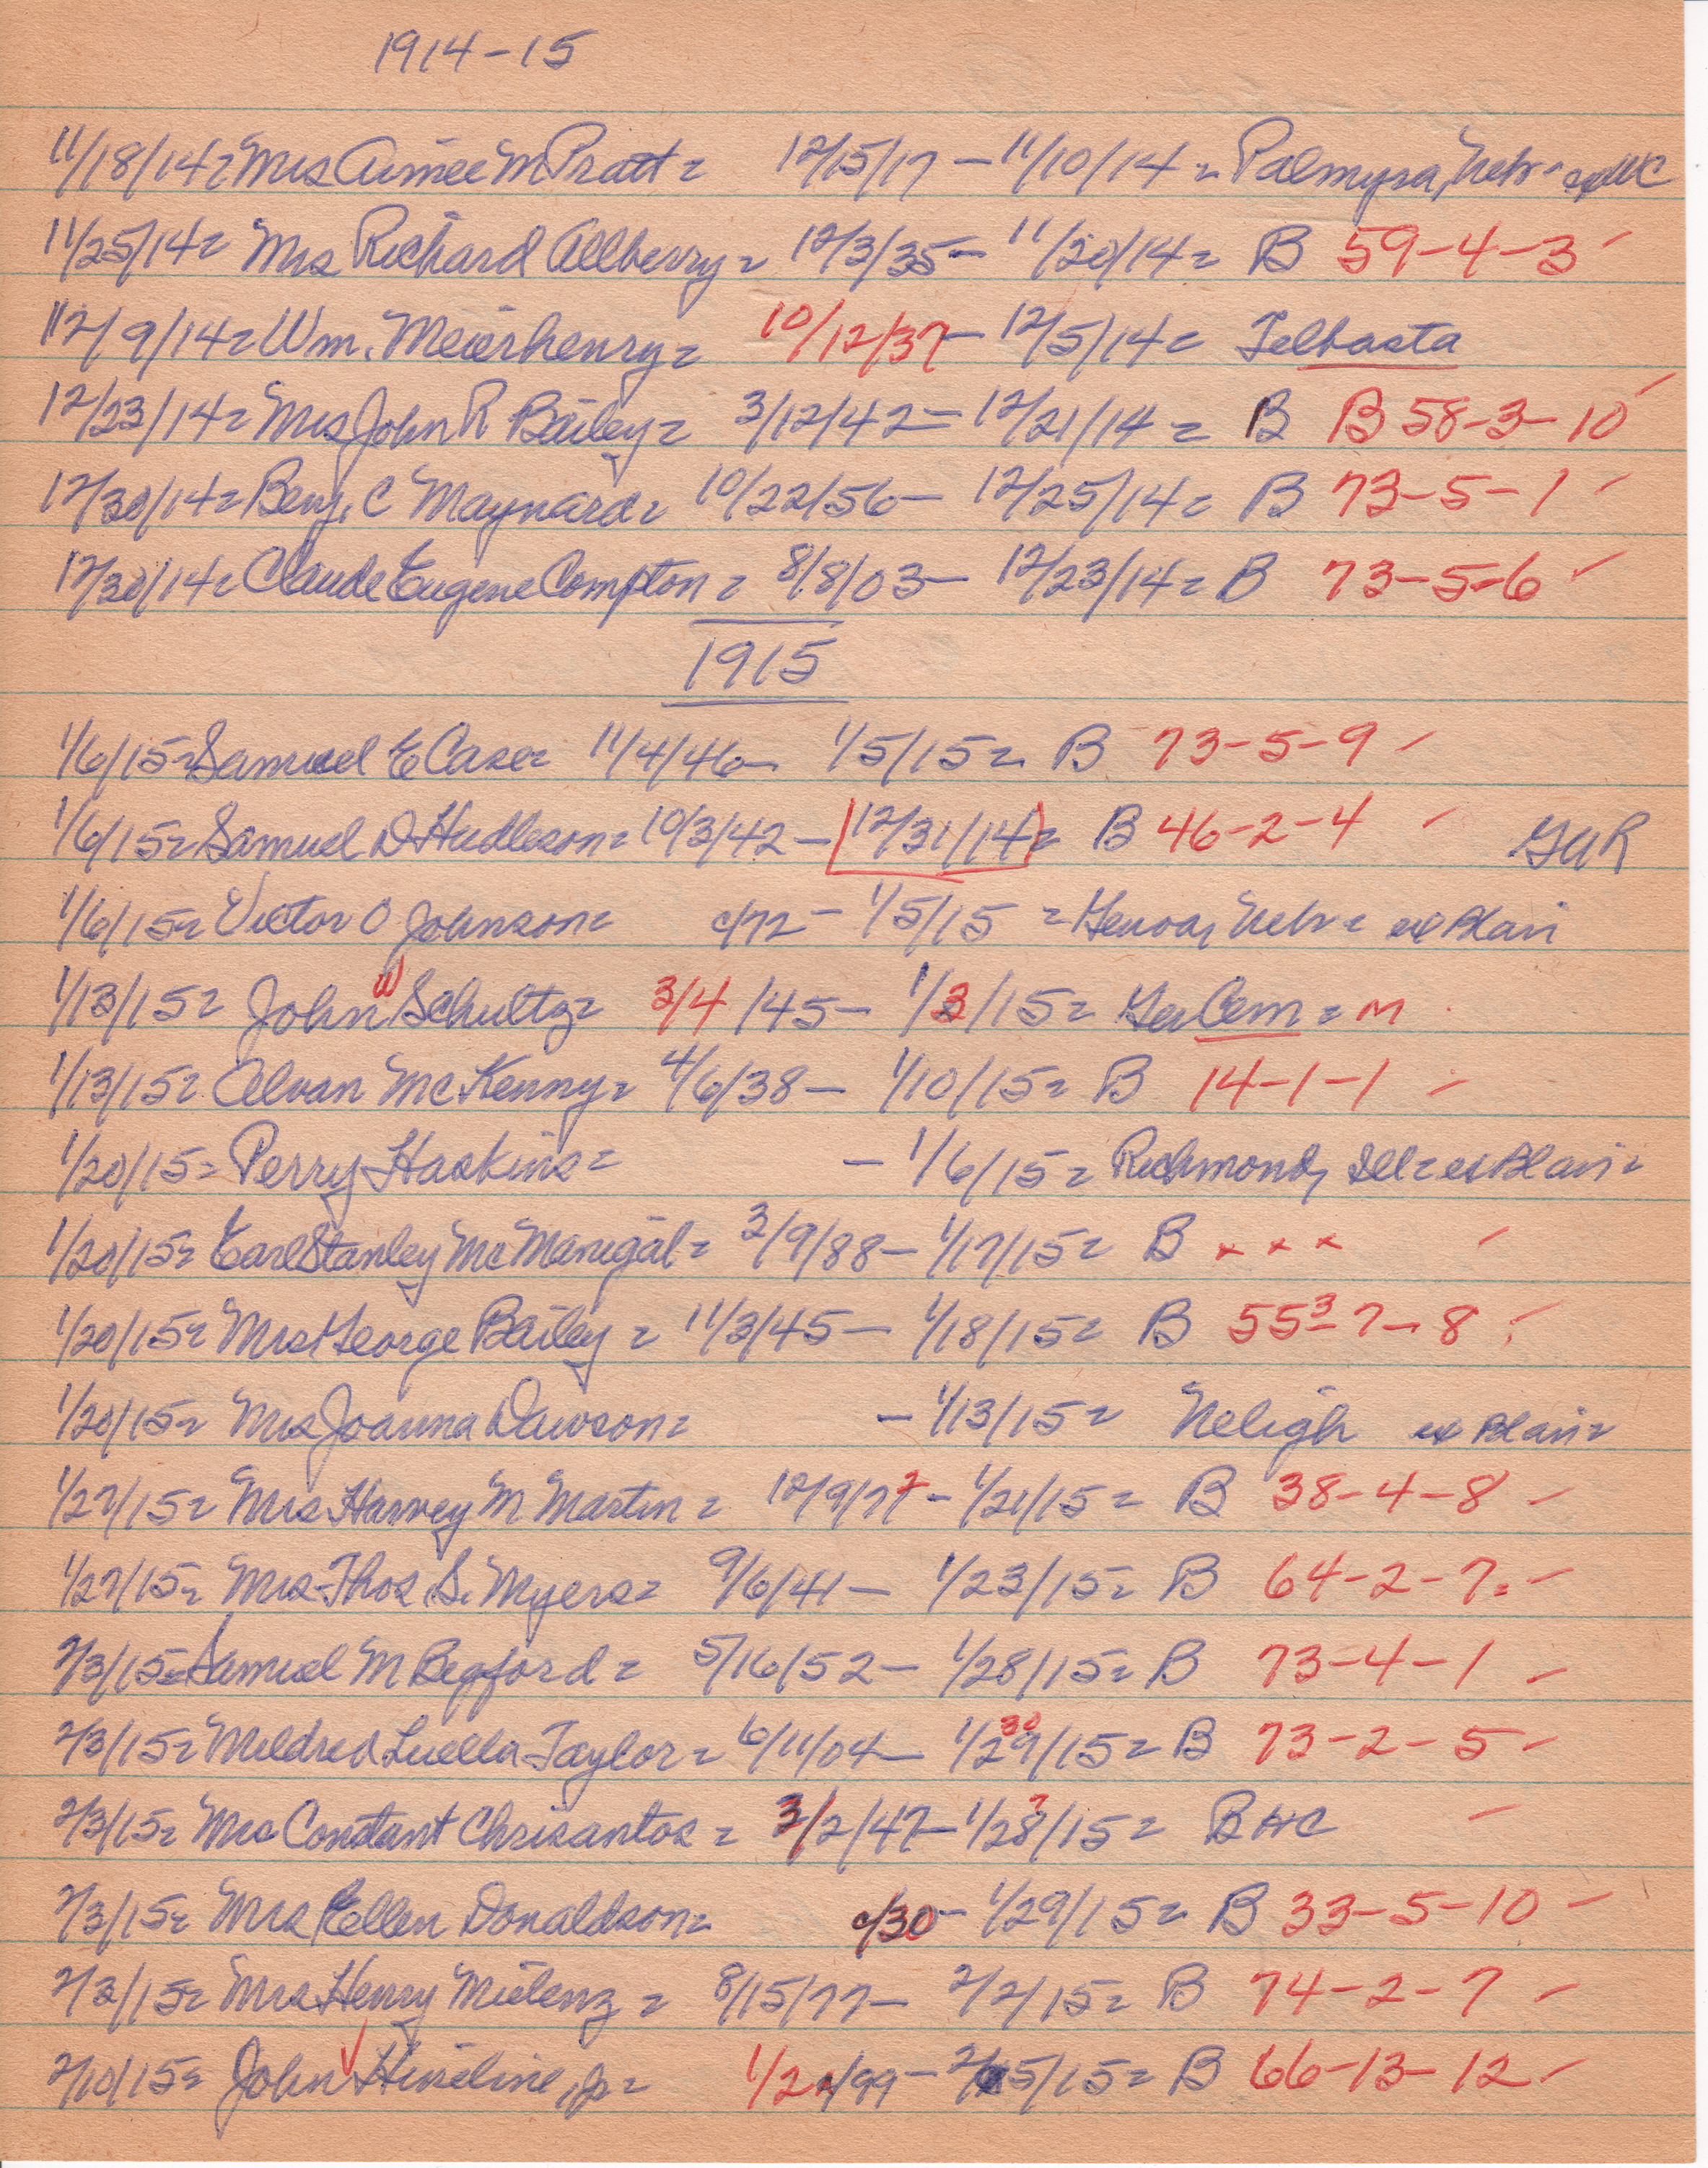 1914-15
11/18/14= Mrs Aimee M Pratt= 12/15/17 - 11/10/14 = Palmyra, Nebr=
11/25/14= Mrs Richard Allberry= 12/3/35- 11/20/14= B 59-4-3
12/9/14= Wm. Meierhenry= 10/12/37- 12/5/14= Telbasta
12/23/14= Mrs John R Bailey= 3/12/42- 12/21/14 = B B 58-3-10
12/30/14= Benj. C Maynard= 10/22/56- 12/25/14= B 73-5-1
12/30/14= Claude Eugene Compton= 8/8/03- 12/23/14= B 73-5-6
1915
1/6/15= Samuel E Case= 11/4/46- 1/5/15= B 73-5-9
1/6/15= Samuel D Hudleson= 10/3/42- 12/31/14= B 46-2-4 GAR
1/6/15= Victor O Johnson= c/72 - 1/5/15 = Genoa, Nebr= ex Blair
1/13/15= John W Schultz= 3/4/45- 1/3/15= Ger Cem = M
1/13/15= Alvan McKenny= 4/6/38- 1/10/15= B 14-1-1
1/20/15= Perry Haskins= - 1/6/15= Richmond, Ill= ex Blair=
1/20/15= Earl Stanley McManigal= 3/9/88- 1/17/15= B x x x
1/20/15= Mrs George Bailey = 11/3/45- 1/18/15= B 55 3-7-8
1/20/15= Mrs Joanna Dawson= - 1/13/15= Neligh ex Blair=
1/27/15= Mrs Harvey M Martin= 12/9/77 2- 1/21/15= B 38-4-8
1/27/15= Mrs Thos. S. Myers= 9/6/41- 1/23/15= B 64-2-7=
2/3/15= Samuel M Begford= 5/16/52- 1/28/15= B 73-4-1
2/3/15= Mildred Luella Taylor= 6/11/04- 1/29 30/15= B 73-2-5
2/3/15= Mrs Constant Chrisantos= 3/2/47- 1/28 ?/15= B HC
2/3/15= Mrs Ellen Donaldson= c/30- 1/29/15= B 33-5-10
2/3/15= Mrs Henry Mielenz = 8/15/77- 2/2/15= B 74-2-7
2/10/15= John Hineline, Jr= 1/2/99- 2/5/15= B 66-13-12